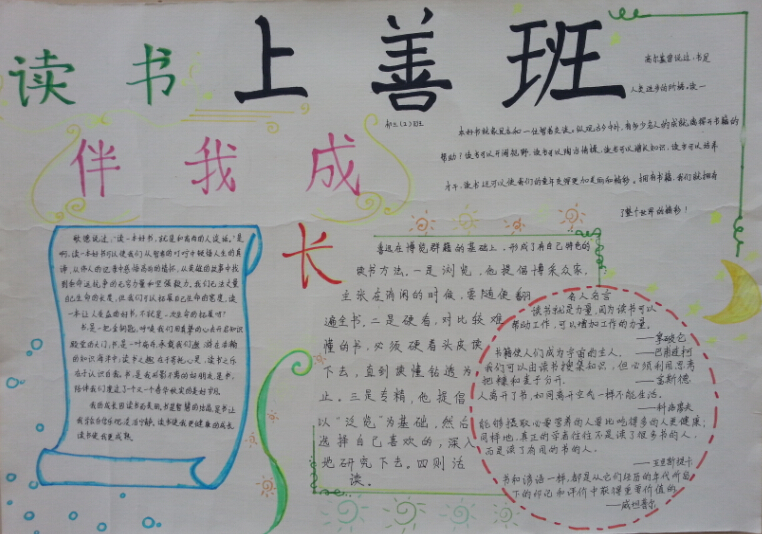 读书上善班
伴我成长
初三(2)班
高尔基曾说过：书是
人类进步的阶梯。读一
本好书就象是在和一位智者交谈。纵观古今中外，有多少名人的成就离得开书籍的
帮助？读书可以开阔视野，读书可以陶冶情操，读书可以增长知识，读书可以培养
身子，读书还可以使我们的童年变得更加美丽和精彩。拥有书籍，我们就拥有
了整个世界的精彩！
歌德说过：“读一本好书，就是和高尚的人谈话。”是
啊，读一本好书可以使我们从智者的叮咛中顿悟人生的真
己生命的长度，但我们可以拓展自己生命的宽度，读
一本让人受益的好书，不就是一次生命的拓展吗？
书是一把金钥匙，呼唤我们用真挚的心去开启知识
殿堂的大门，书是一叶扁舟，承载我们遨游在浩瀚
的知识海洋中；读书之趣在于寄托心灵，读书之乐
在于认识自我，书是我形影不离的好朋友，是书，
陪伴我们度过了一个又一个春华秋实的美好岁月。
读书使我更成熟。
鲁迅在博览群籍的基础上，形成了有自己特色的
读书方法。一是浏览，他提倡博采众家，
主张在消闲的时候，要随便翻
遍全书，二是硬看，对比较难
懂的书，必须硬着头皮读
下去，直到读懂钻透为
止。三是专精，他提倡
以“泛览”为基础，然后
选择自己喜欢的，深入
地研究下去。四则活
读。
名人名言
读书就是力量，因为读书可以
帮助工作，可以增加工作的力量。
——李硕仑
书籍使人们成为宇宙的主人。——巴甫连柯
我们可以由读书搜集知识，但必须利用思考
把糠和麦子分开。——富斯德
人离开了书，如同离开空气一样不能生活。
——科洛廖夫
能够摄取必要营养的人要比吃得多的人更健康；
同样地，真正的学者往往不是读了很多书的人，
而是读了有用的书的人。
——亚里斯提卜
书和谚语一样，都是从它们经历的年代所留
下的印记和评价中获得重要价值的。
——威坦普尔